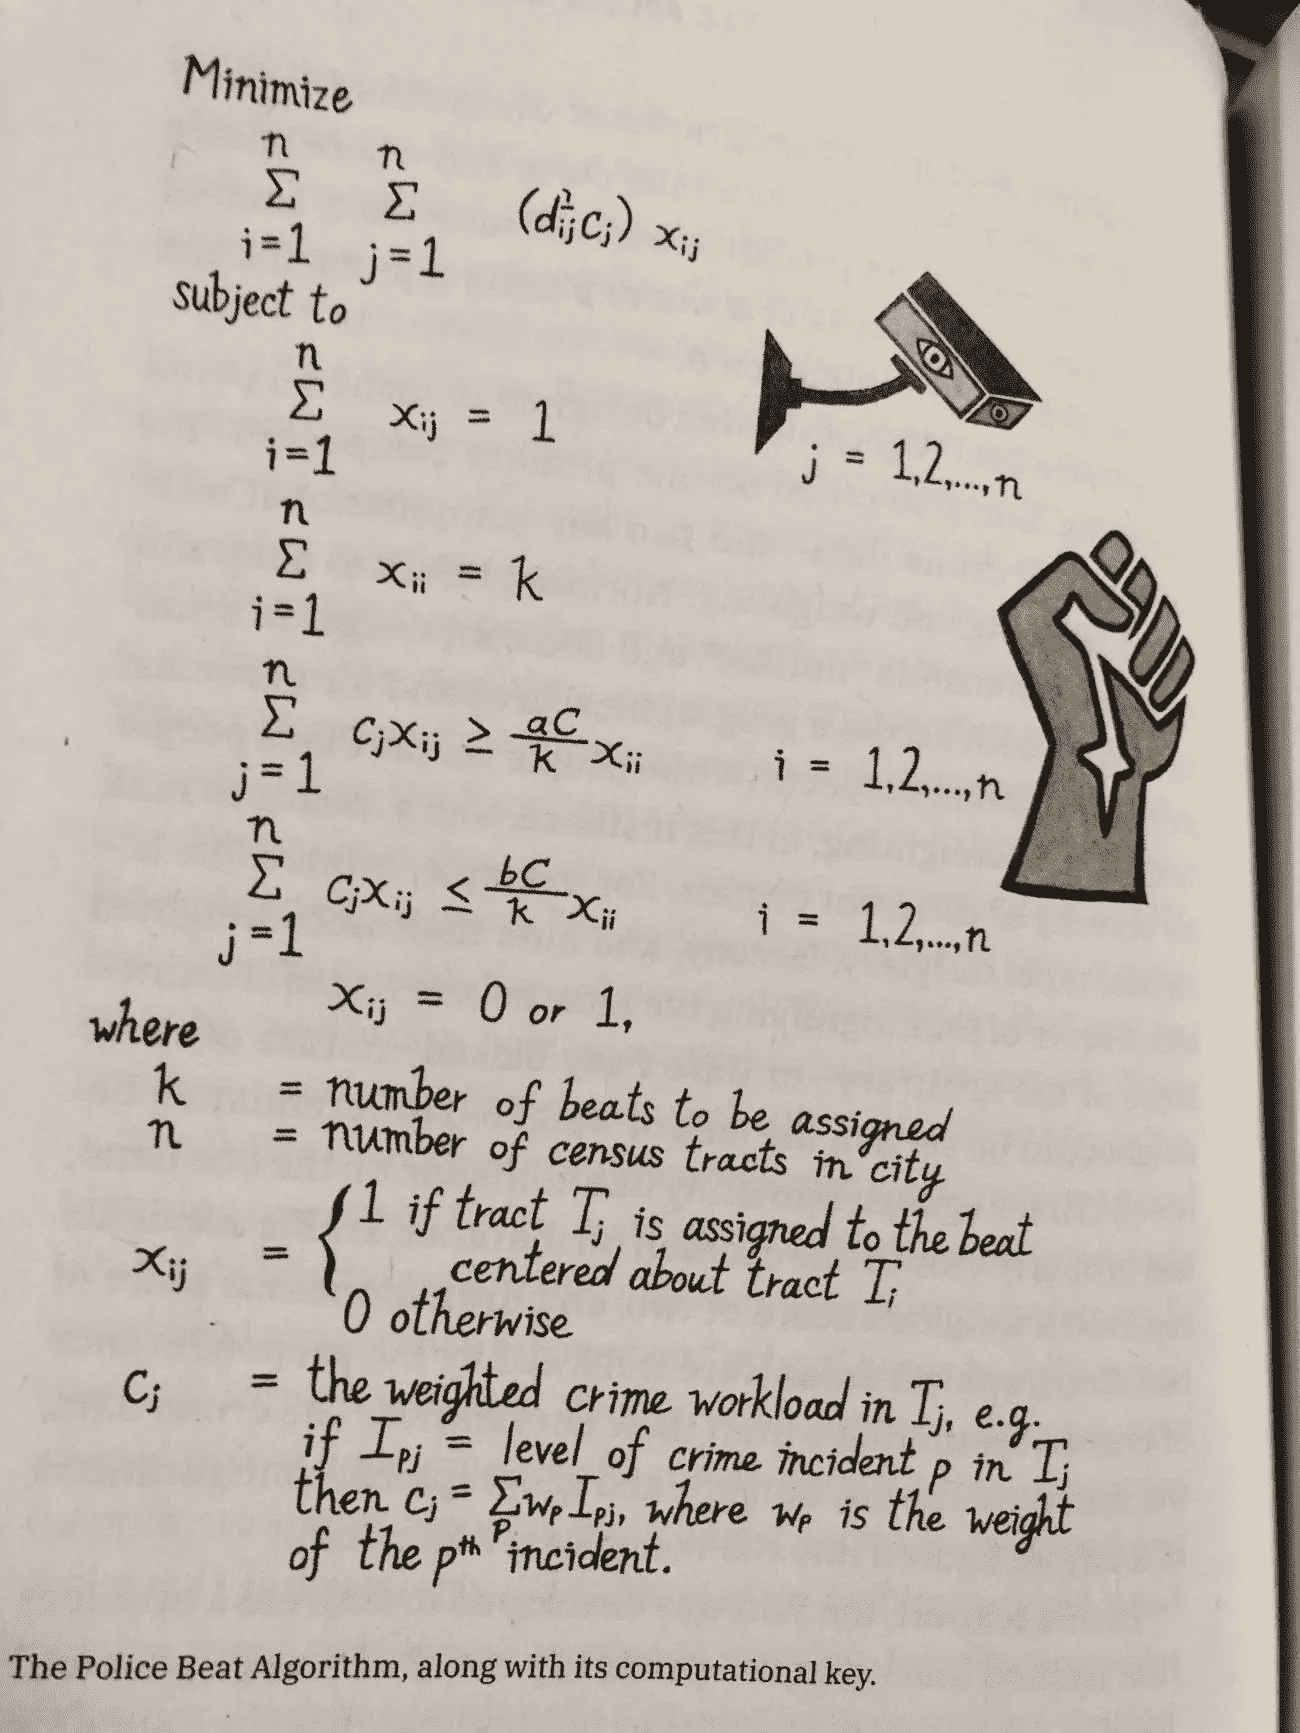 Minimize
n n
Σ Σ (d²ij cj) xij
i=1 j=1
subject to
n
Σ xij = 1 j = 1,2,...,n
i=1
n
Σ xii = k
i=1
n
Σ cjxij ≥ aC/k xii i = 1,2,...,n
j=1
n
Σ cjxij ≤ bC/k xii i = 1,2,...,n
j=1
xij = 0 or 1,
where
k = number of beats to be assigned
n = number of census tracts in city
xij = { 1 if tract Tj is assigned to the beat
centered about tract Ti
0 otherwise
cj = the weighted crime workload in Tj, e.g.
if Ipj = level of crime incident p in Tj
then cj = Σ wp Ipj, where wp is the weight
p
of the pth incident.
The Police Beat Algorithm, along with its computational key.